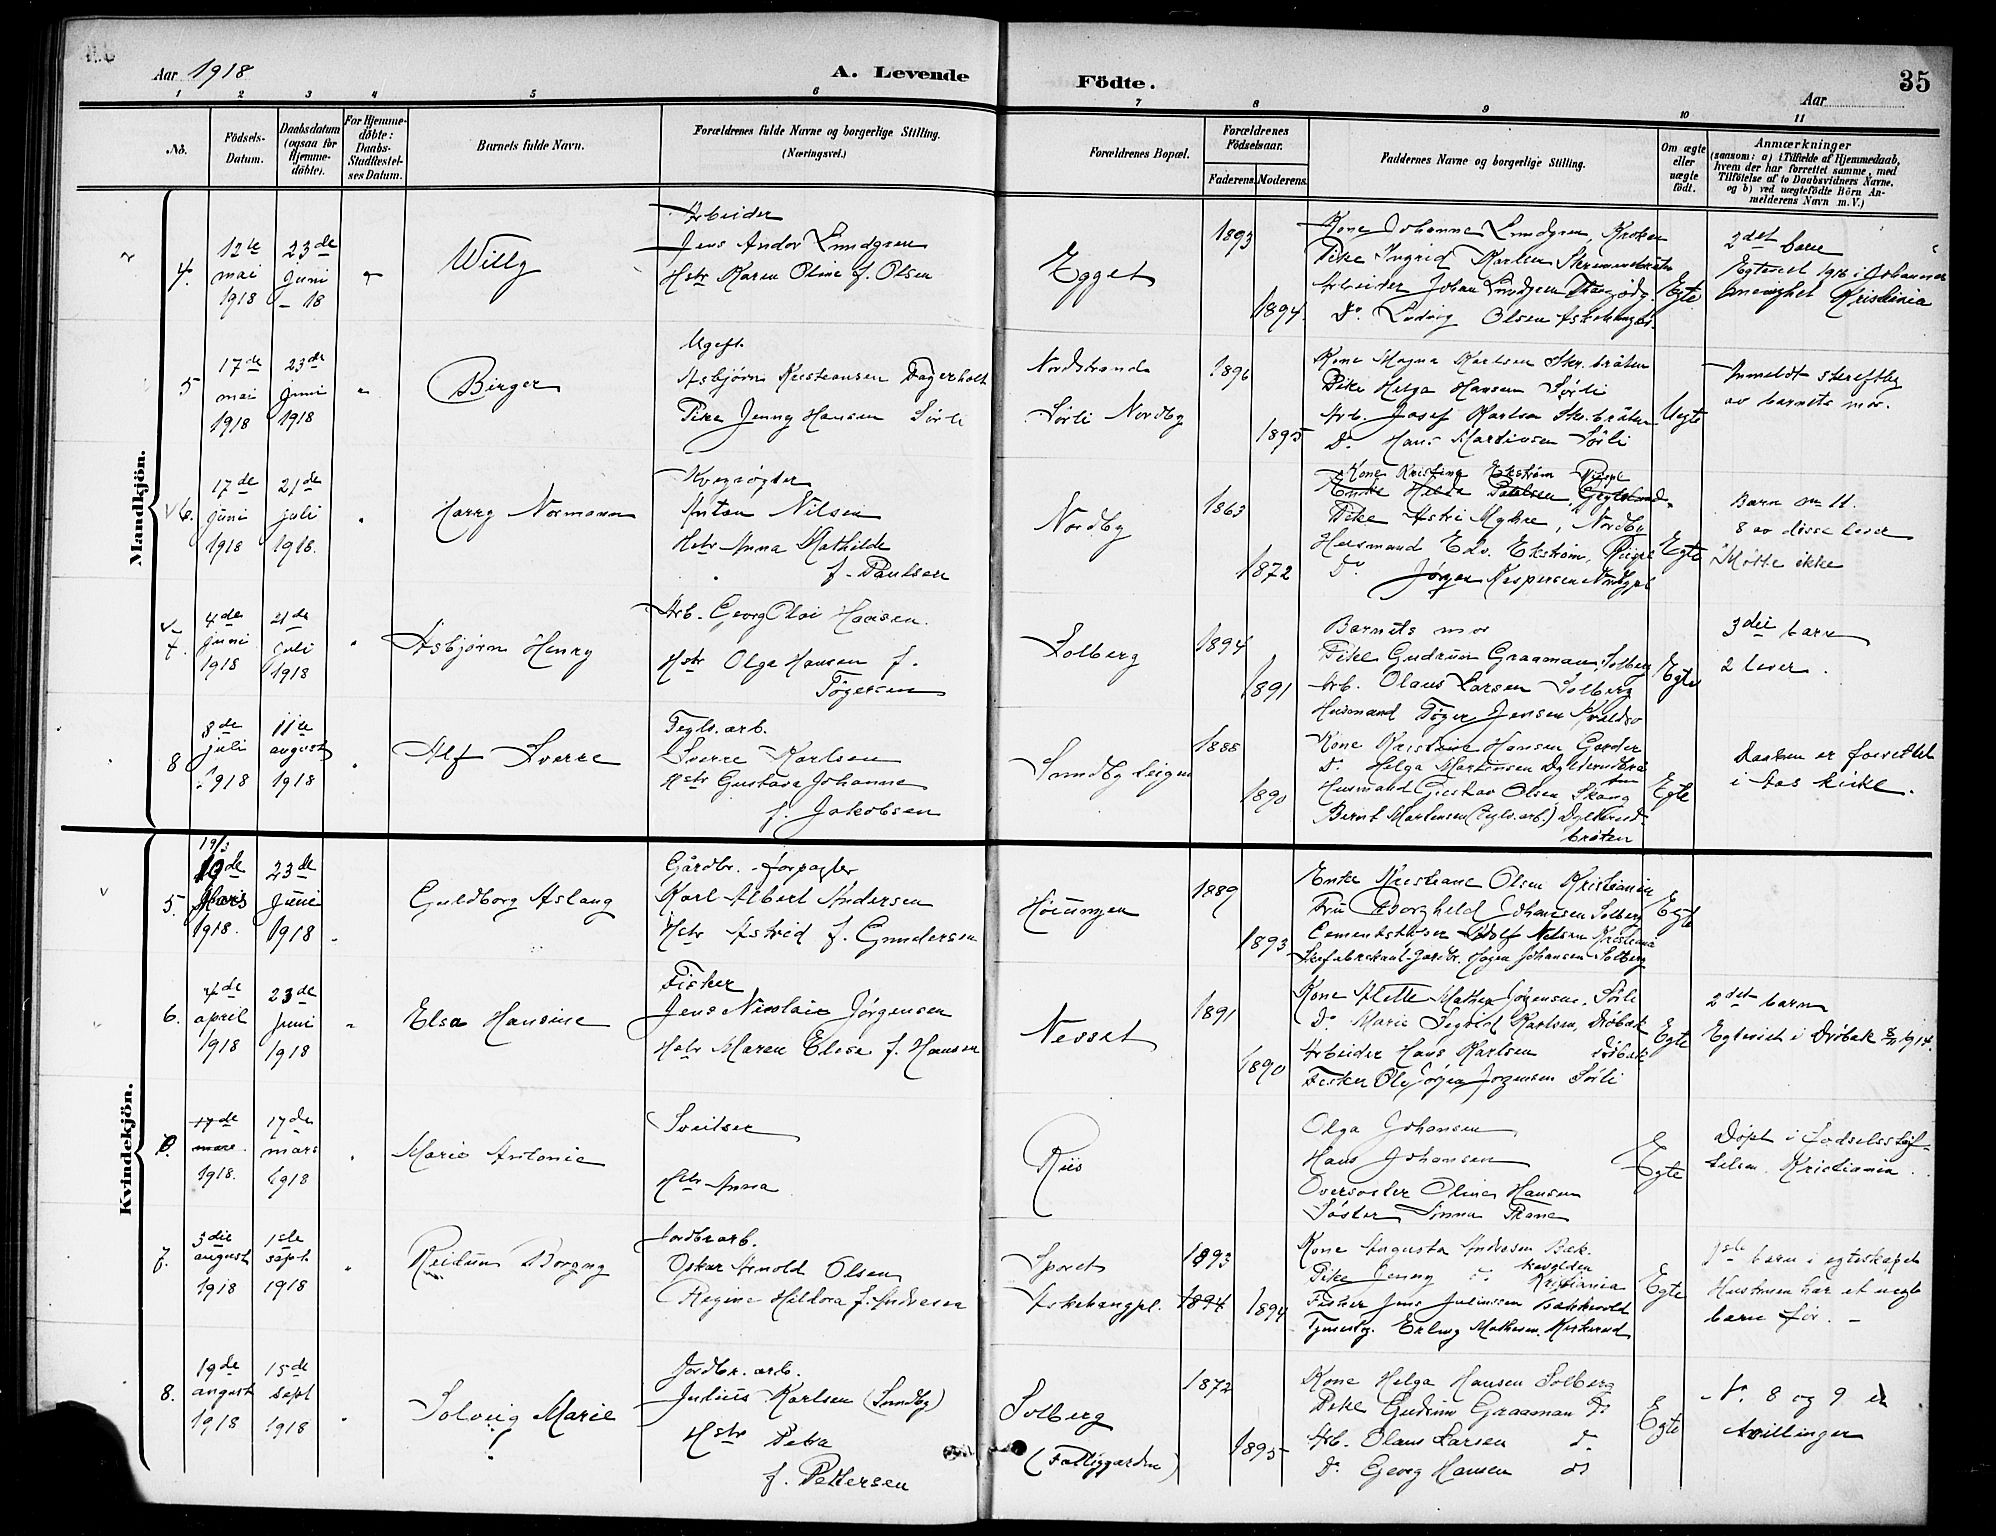 Aar 1918
A. Levende Födte.
35
Aar
1 2 3 4 5 6 7 8 9 10 11
No.
Födsels-Datum.
Daabsdatum (ogsaa for Hjemmedöbte).
For Hjemmedöbte: Daabs-Stadfestelses Datum.
Barnets fulde Navn.
Forældrenes fulde Navne og borgerlige Stilling. (Næringsvei.)
Forældrenes Bopæl.
Forældrenes Födselsaar.
Faderens. Moderens.
Faddernes Navne og borgerlige Stilling.
Om ægte eller uægte födt.
Anmærkninger (saasom: a) i Tilfælde af Hjemmedaab, hvem der har forrettet samme, med Tilföielse af to Daabsvidners Navne, og b) ved uægtefödte Börn Anmelderens Navn m. V.)
Mandkjön.
4.
12te mai 1918
23de Juni - 18
Willy
Arbeider
Jens Andor Lundgren
Hstr Karen Oline f. Olsen
Egget
1893
1894.
Kone Johanne Lundgren, Kroken
Pike Ingrid Karlsen
Arbeider Johan Lundgren
Do. Ludvig Olsen
Egte
2det barn
Egteviet 1916 i Johannes
menighet Kristiania
5
17de mai 1918
23de Juni 1918
"
Birger
Ugift
Asbjørn Kristiansen Fagerholt
Pike Jenny Hansen Sørli
Nordstrand
Sørli Nordby
1896
1895
Kone Magna Karlsen Skr.bråten
Pike Helga Hansen Sørli
Arb. Josef Karlsen Skr.bråten
Do. Hans Martinsen Sørli
Uegte
Anmeldt skriftlig
av barnets mor.
6.
17de juni 1918
21de juli 1918.
"
Harry Normann
Kvegrøgter
Anton Nilsen
Hstr Anna Mathilde
f. Paulsen
Nordby
1863
1872
Kone Kristine Ekstrøm
Enke Hilda Paulsen
Pike Astri Myhre, Nordby
Husmand Edv. Ekstrøm,
Do. Jørgen Kaspersen
Egte
Barn no 11.
8 av disse lever
Møtte ikke
7.
4de juni 1918
21de juli 1918
"
Asbjørn Henry
Arb. Georg Olai Hansen.
Hstr Olga Hansen f.
Tøgersen
Solberg
1894
1891
Barnets mor
Pike Gudrun Graaman, Solberg
Arb. Olaus Larsen Solberg
Husmand Tøger Jensen
Egte
3die barn
2 lever.
8
8de juli 1918
11te august 1918
"
Alf Sverre
Tegls.arb.
Sverre Karlsen
Hstr Gustava Johanne
f. Jakobsen
Sundby
1888
1890
Kone Kristine Hansen Garder
Do. Helga Martinsen
Husmand Gustav Olsen
Bernt Martinsen (Tegls.arb.)
bråten
Egte
Daaben er forrettet
i Aas kirke.
Kvindekjön.
5.
19/3
19de Mars 1918.
23de Juni 1918
"
Guldborg Aslaug
Gårdbr. - forpagter
Karl Albert Andersen
Hstr Astrid f. Gundersen
1889
1893
Enke Kristiane Olsen Kristiania
Fru Borghild Johansen Solberg
Nilsen Kristiania
Johansen Solberg
Egte
6.
4de april 1918
23de Juni 1918
"
Elsa Hansine
Fisker
Jens Nicolai Jørgensen
Hstr Maren Elise f. Hansen
Nesset
1891
1890
Kone Alette Mathea Jørgensen, Sørli
Do. Marie Karlsen, Drøbak
Arbeider Hans Karlsen Drøbak
Fisker Ole Jørgen Jørgensen Sørli
Egte
2det barn
Egteviet i Drøbak 1914.
17de mars 1918.
17de mars 1918
"
Marie Antonie
Sveitser
Hstr Anna
Riis
Olga Johansen
Hans Johansen
Oversøster Oline Hansen
Søster Trane
Egte
Døpt i Fødselsstif-
telsen, Kristiania.
7.
3die august 1918
1ste sept 1918
"
Reidun Borgny
Jordbr.arb.
Oskar Arnold Olsen
Regine Heldora f. Andresen
Sporet
Askehaugpl.
1893
1894
1894
Kone Augusta Andresen
Pike Jenny do. Kristiania
Fisker Jens Juliussen
Erling Mathesen,
Egte
1ste barn i egteskapet
Hustruen har et uegte
barn før. -
8.
19de august 1918
15de sept 1918
"
Solveig Marie
Jordbr.arb.
Julius Karlsen (Sundby)
Hstr Petra
f. Pettersen
Solberg
(Fattiggarden)
1872
1895
Kone Helga Hansen Solberg
Pike Gudrun Graaman Do
Arb. Olaus Larsen Do.
Do. Georg Hansen do
Egte
No. 8 og 9 er
tvillinger